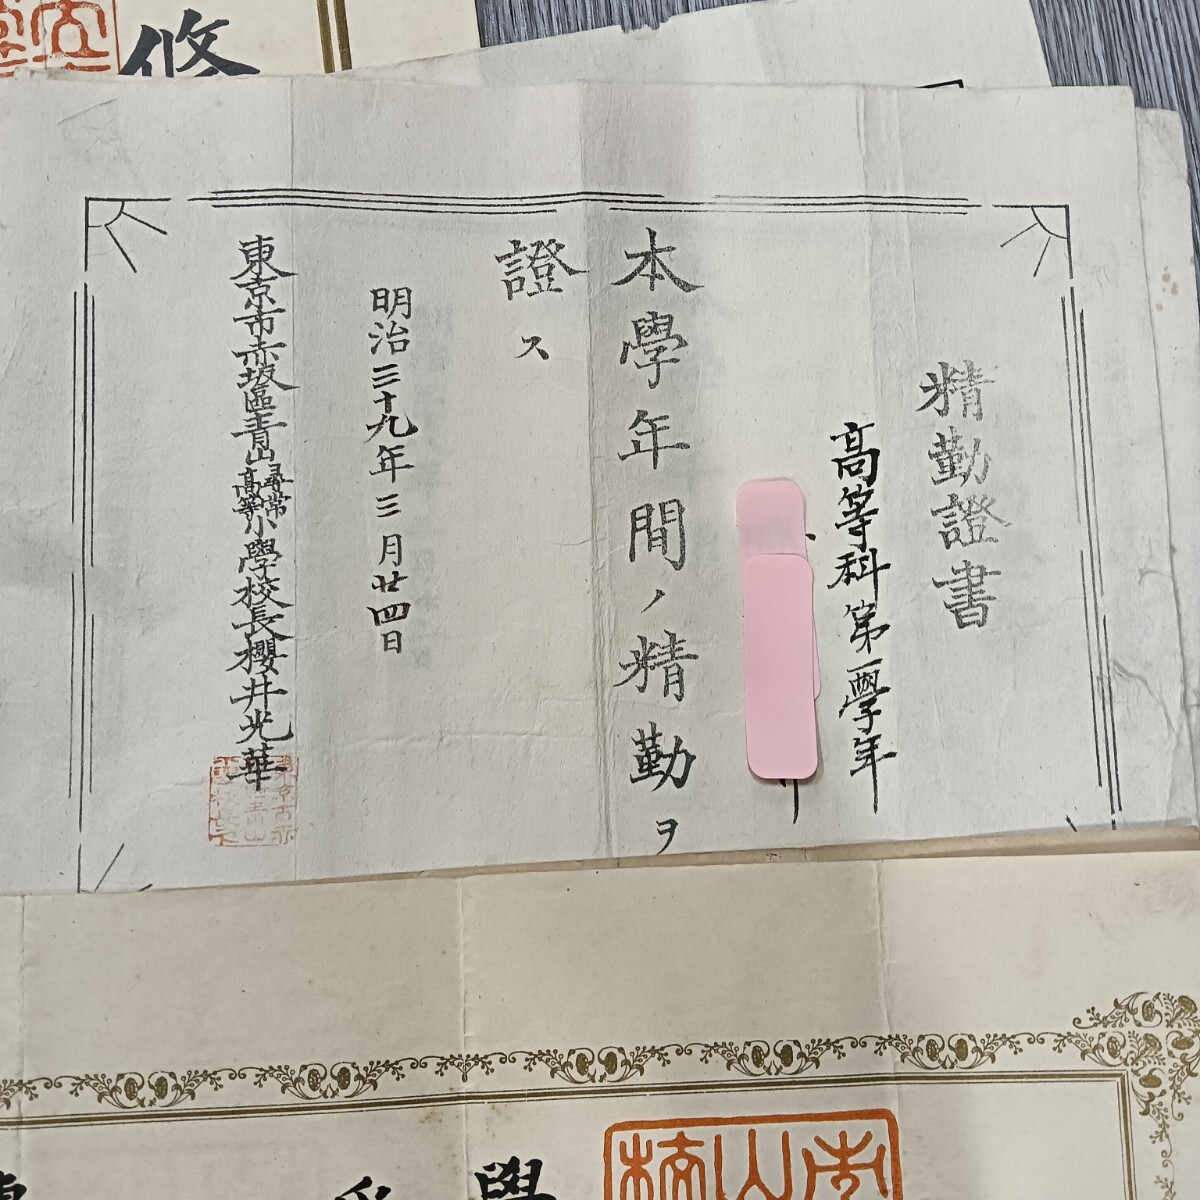 修
精勤證書
高等科第一學年
本學年間ノ精勤ヲ
證ス
明治三十九年三月廿四日
東京市赤坂區青山尋常高等小學校長櫻井光華
學